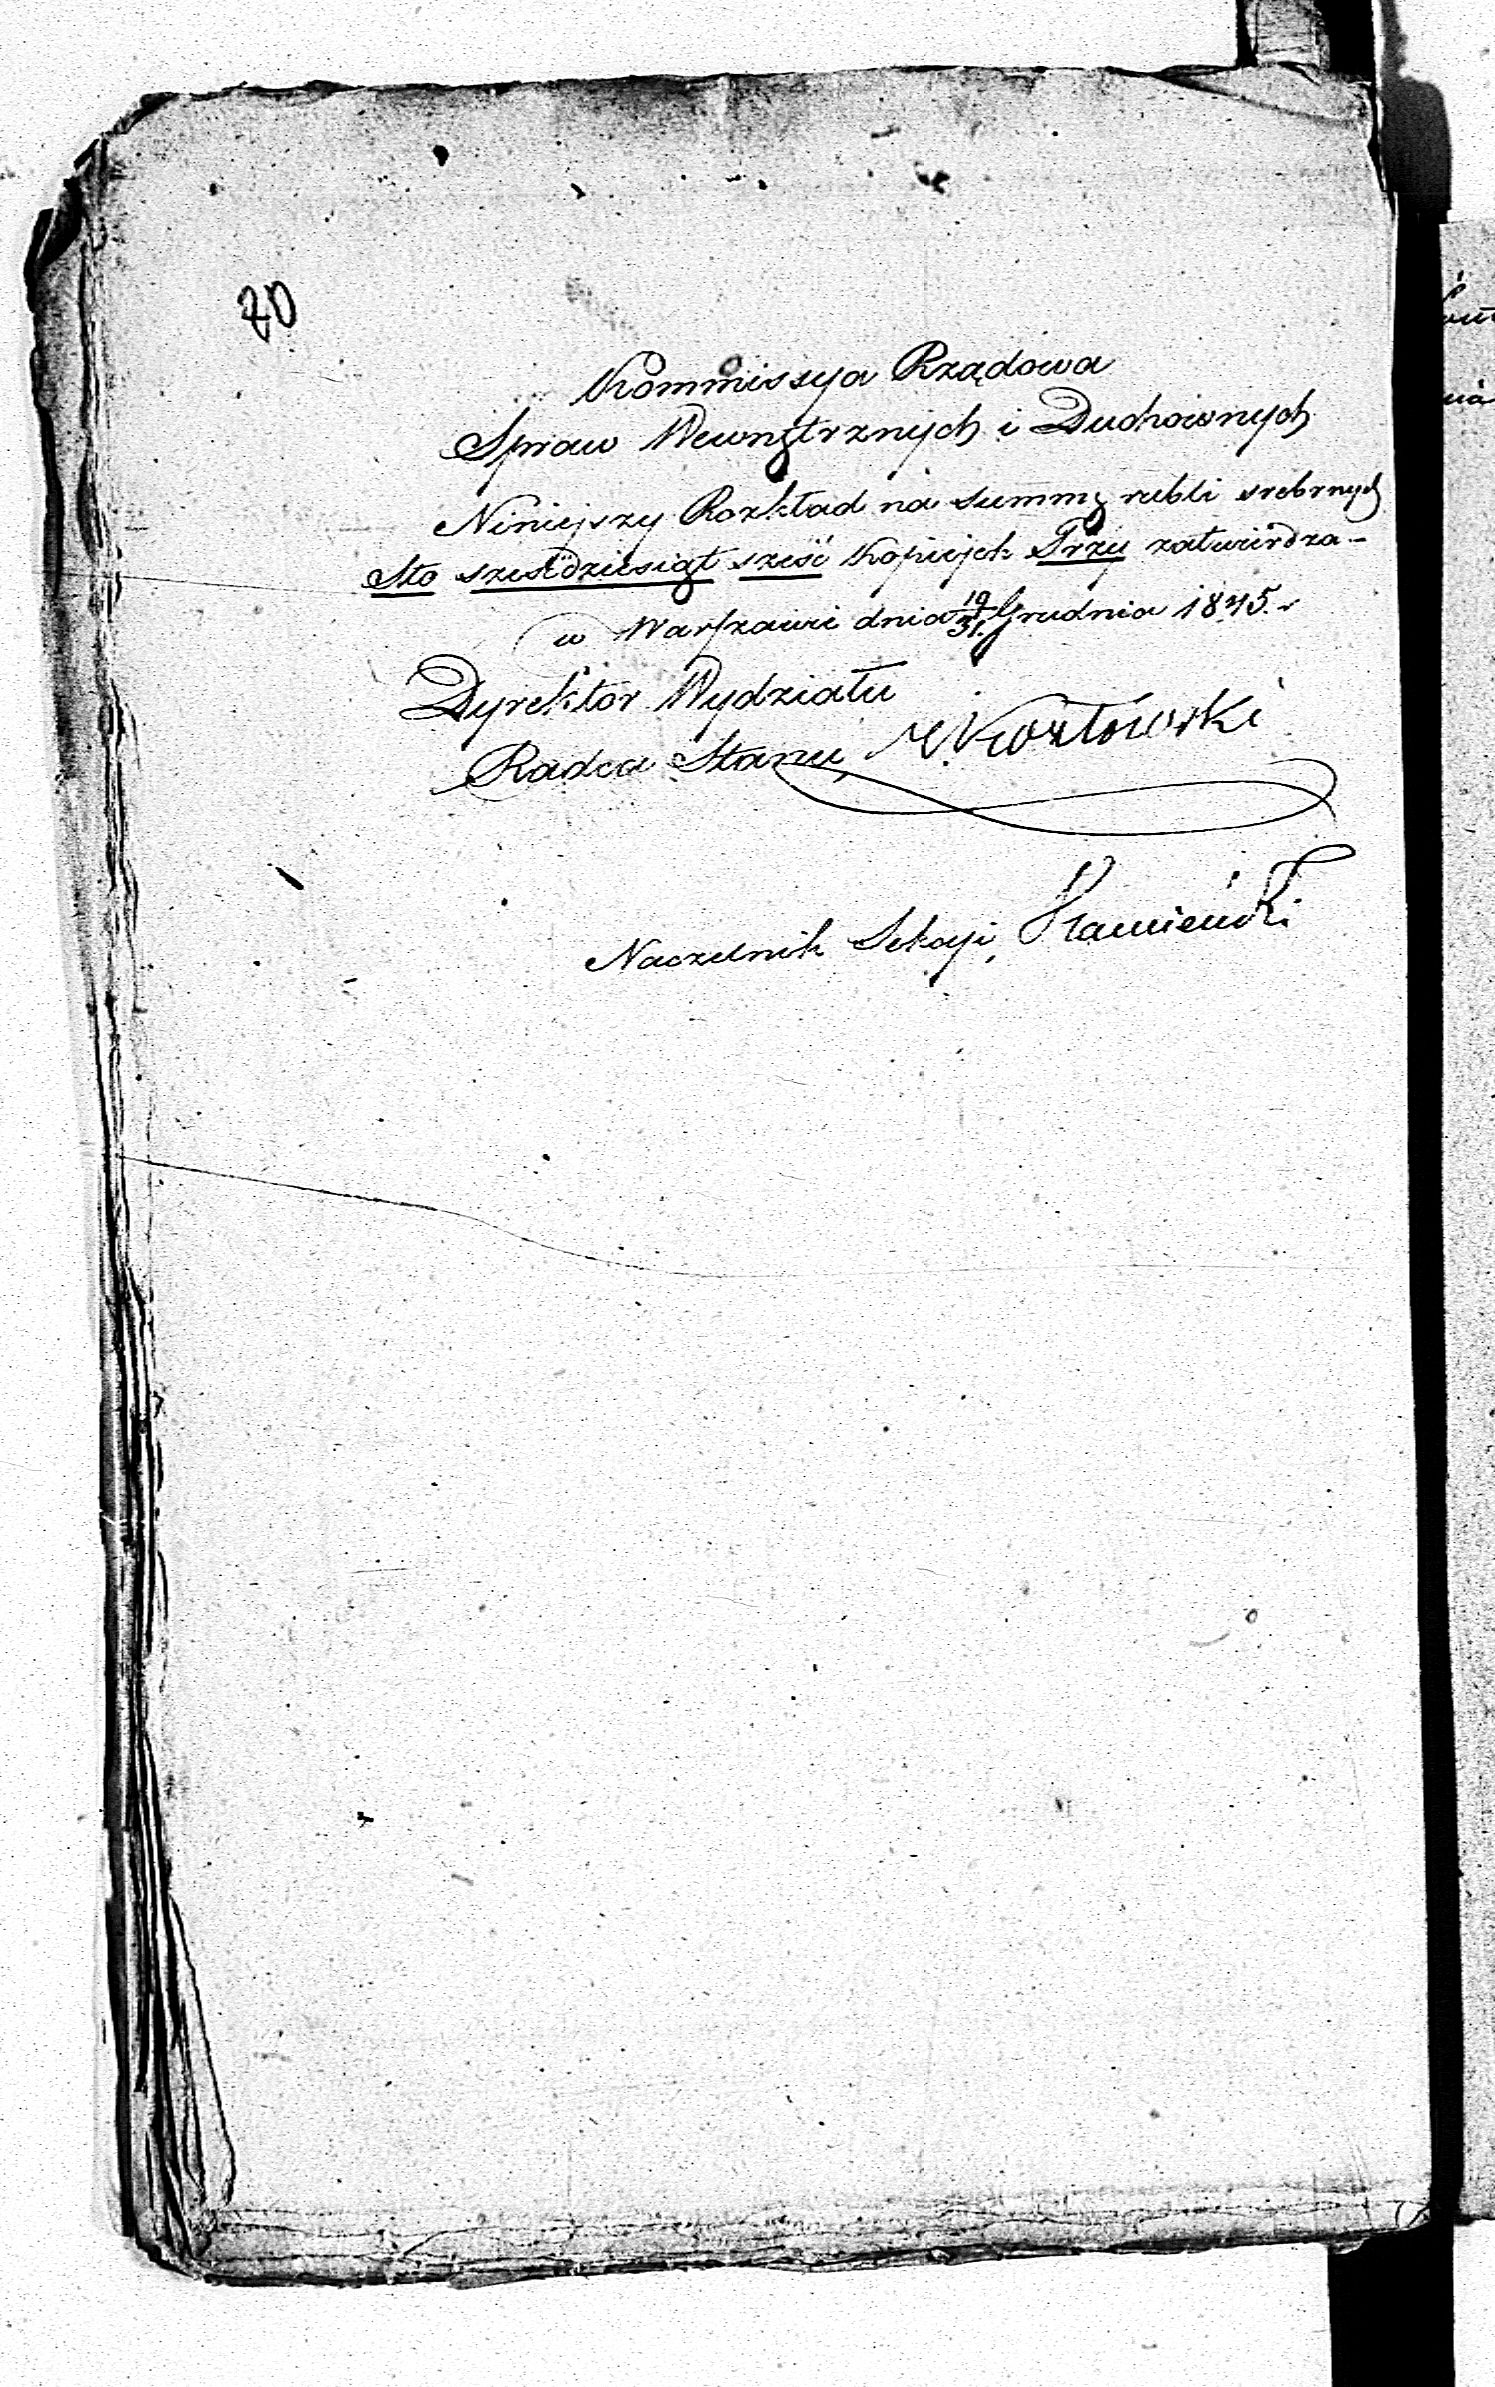 20
Kommissya Rządowa
Spraw Wewnętrznych i Duchownych
Niniejszy Rozkład na summę rubli srebrnych
Sto sześćdziesiąt sześć kopiejek Trzy zatwierdza –
w Warszawie dnia 19/31 Grudnia 1845. r
Dyrektor Wydziału
Radca Stanu, Kozłowski
Naczelnik Sekcyi, Kamieński